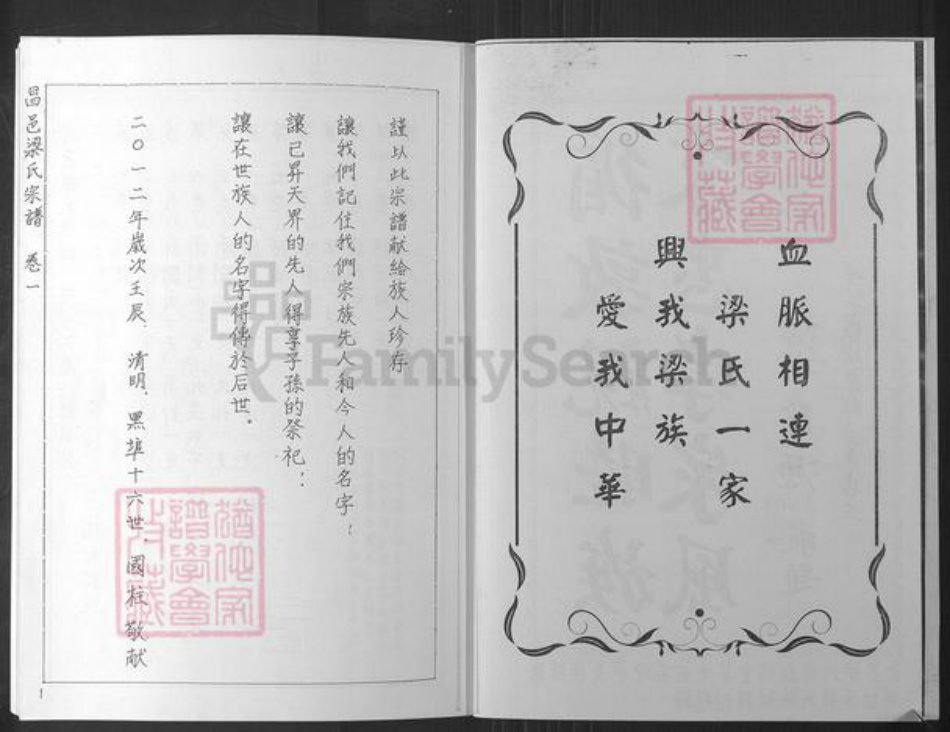 血脈相連
梁氏一家
興我梁族
愛我中華
謹以此宗譜献給族人珍存
讓我們記住我們宗族先人和今人的名字；
讓已昇天界的先人得享子孫的祭祀；
讓在世族人的名字得傳於后世。
二〇一二年歲次壬辰、清明、黑埠十六世、國柱敬献
昌邑梁氏宗譜 卷一
1
FamilySearch